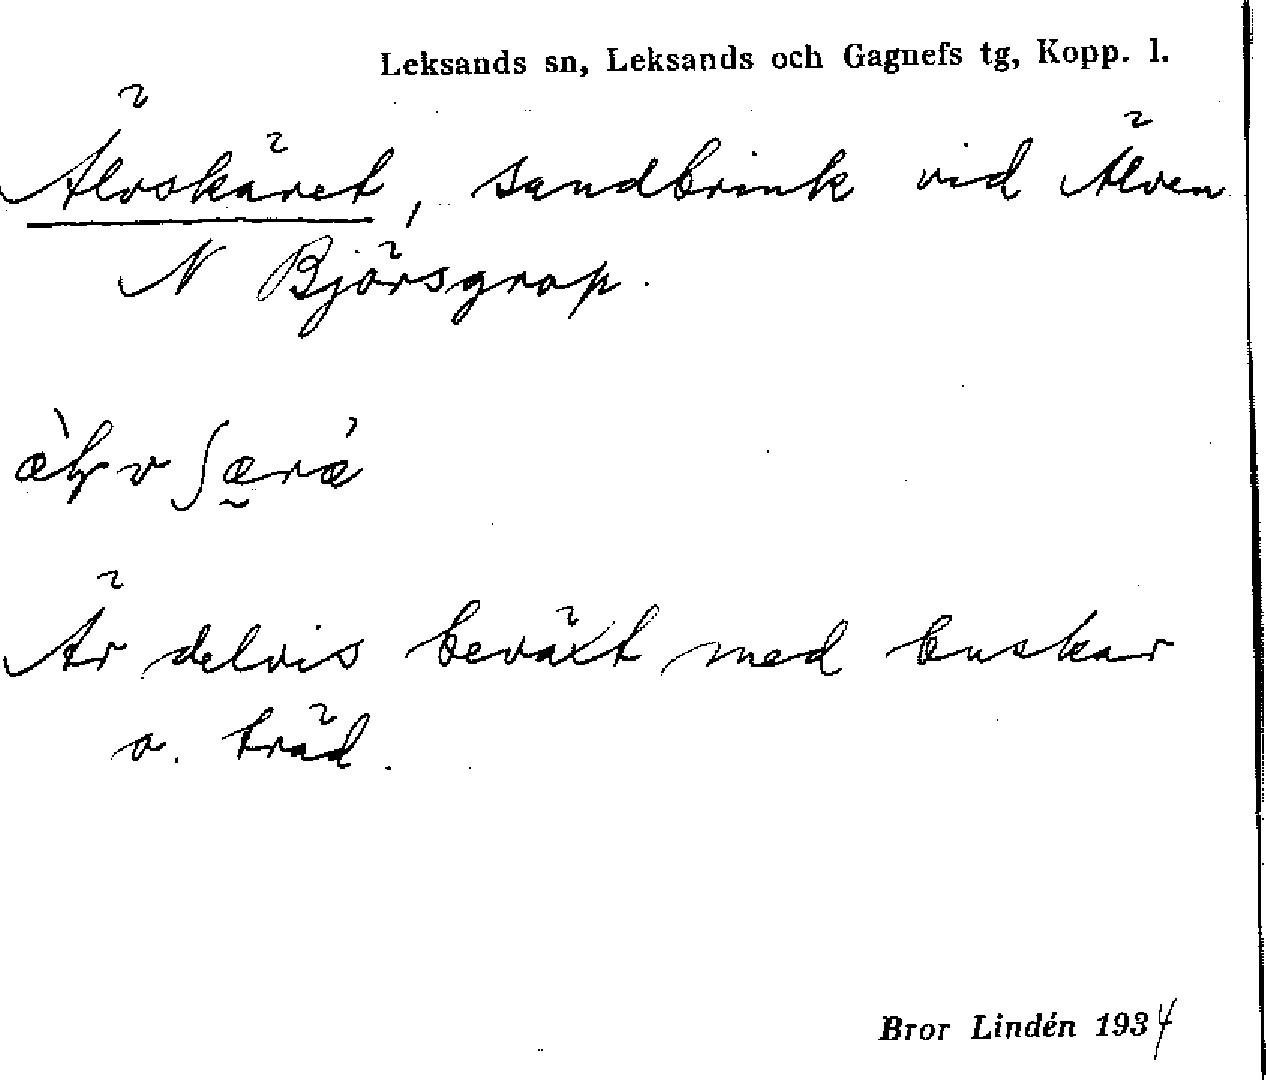 Leksands sn, Leksands och Gagnefs tg, Kopp. l.
Älvskäret, sandbrink vid Älven
N Björsgrop.
Är delvis beväxt med buskar
o. träd.
Bror Lindén 1934